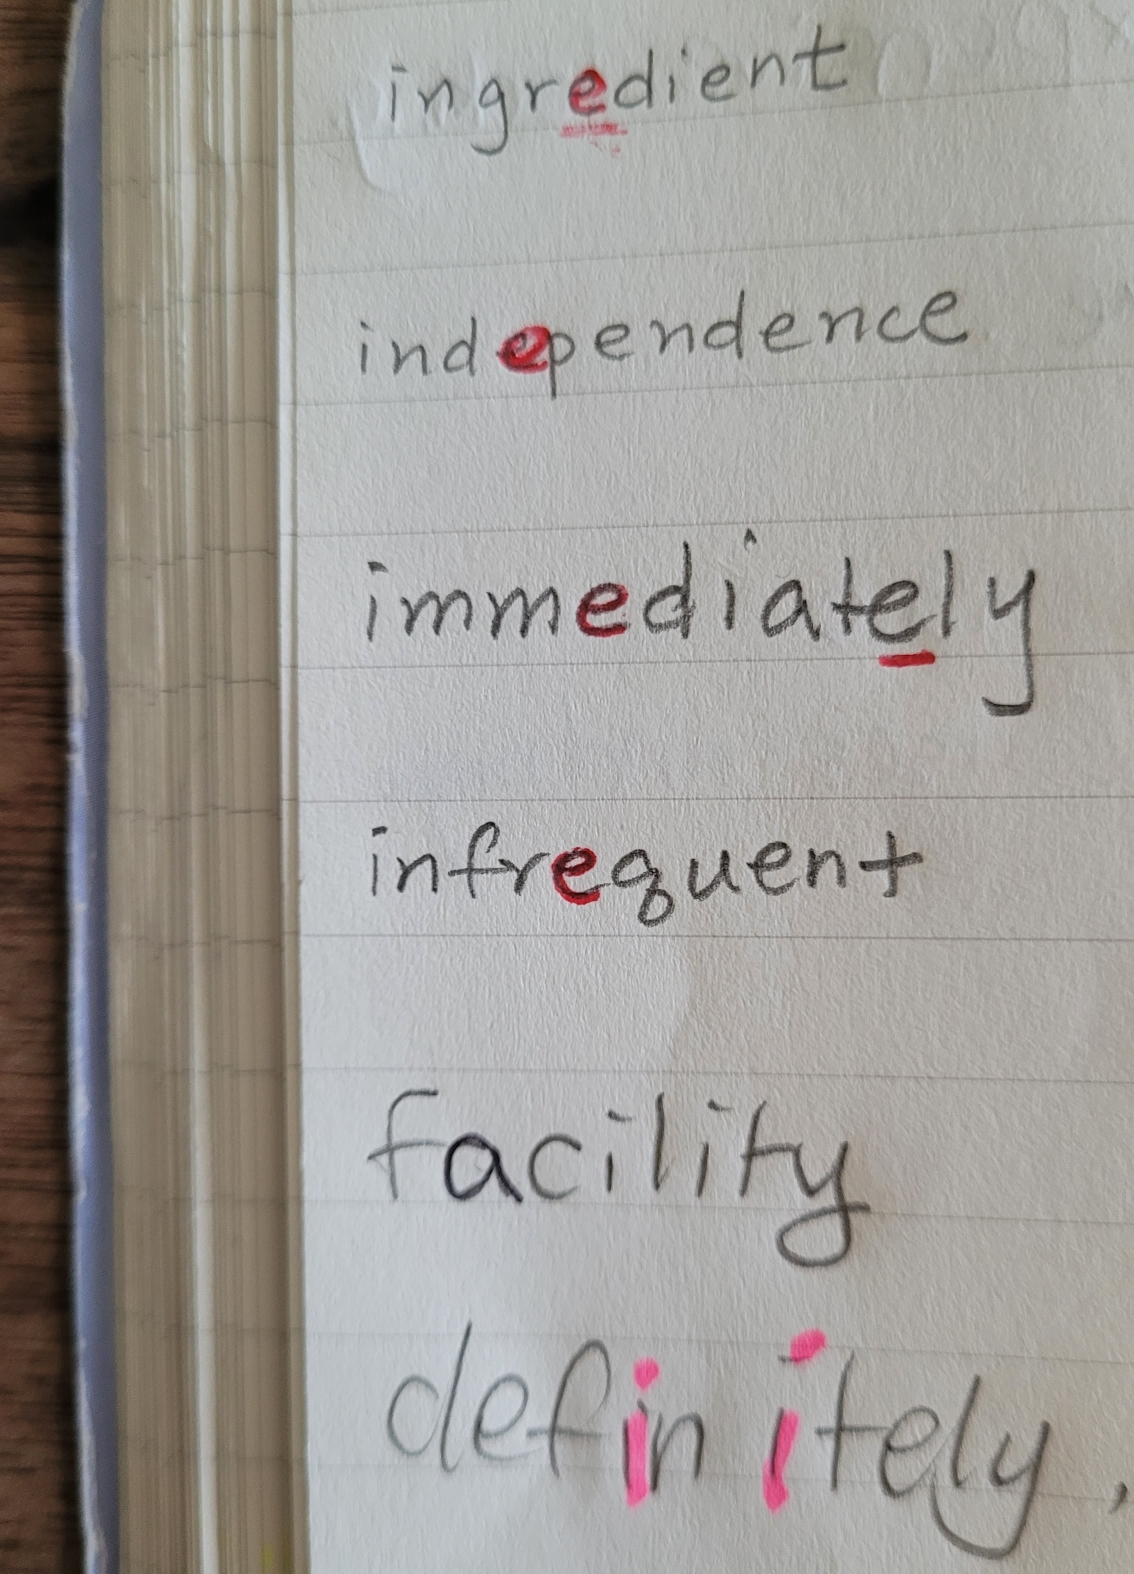 ingredient
independence
immediately
infrequent
facility
definitely,